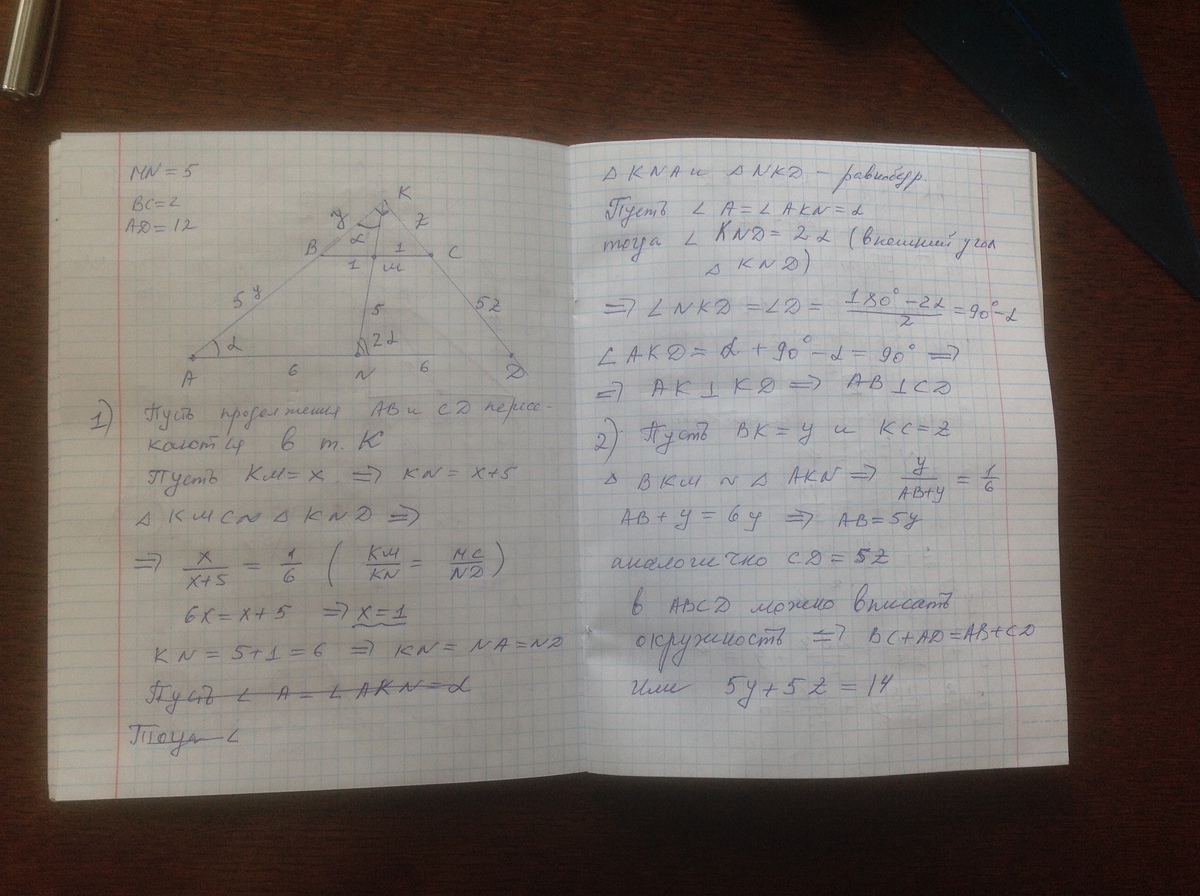 MN = 5
BC = 2
AD = 12
K
y
z
α
B
1
1
M
C
5y
5
5z
α
2α
A
6
N
6
D
1) Пусть продолжения AB и CD пересе-
каются в т. K
Пусть KM = x ⇒ KN = x+5
△ KMC ~ △ KND ⇒
⇒ x/(x+5) = 1/6 ( KM/KN = MC/ND )
6x = x+5 ⇒ x=1
KN = 5+1 = 6 ⇒ KN = NA = ND
Пусть ∠ A = ∠ AKN = α
Тогда ∠
△ KNA и △ NKD – равнобедр.
Пусть ∠ A = ∠ AKN = α
тогда ∠ KND = 2α (внешний угол
△ KND)
⇒ ∠ NKD = ∠D = (180° – 2α)/2 = 90° – α
∠ AKD = α + 90° – α = 90° ⇒
⇒ AK ⊥ KD ⇒ AB ⊥ CD
2) Пусть BK = y и KC = z
△ BKM ~ △ AKN ⇒ y/(AB+y) = 1/6
AB + y = 6y ⇒ AB = 5y
аналогично CD = 5z
в ABCD можно вписать
окружность ⇒ BC+AD=AB+CD
или 5y + 5z = 14